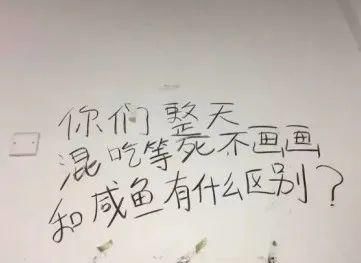 你们整天
混吃等死不画画
和咸鱼有什么区别？